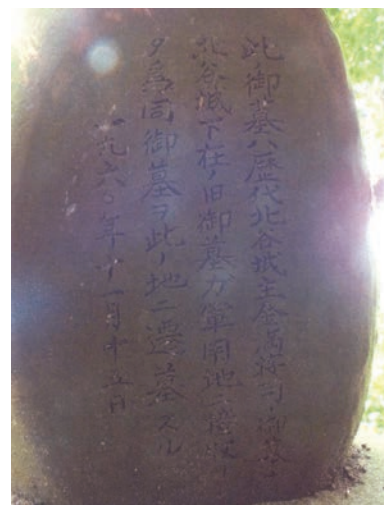 此御墓ハ歴代北谷城主金満按司ノ御墓
北谷城下在ノ旧御墓ガ軍用地ニ接収
タ為同御墓ヲ此ノ地ニ遷墓スル
一九六〇年十一月十五日